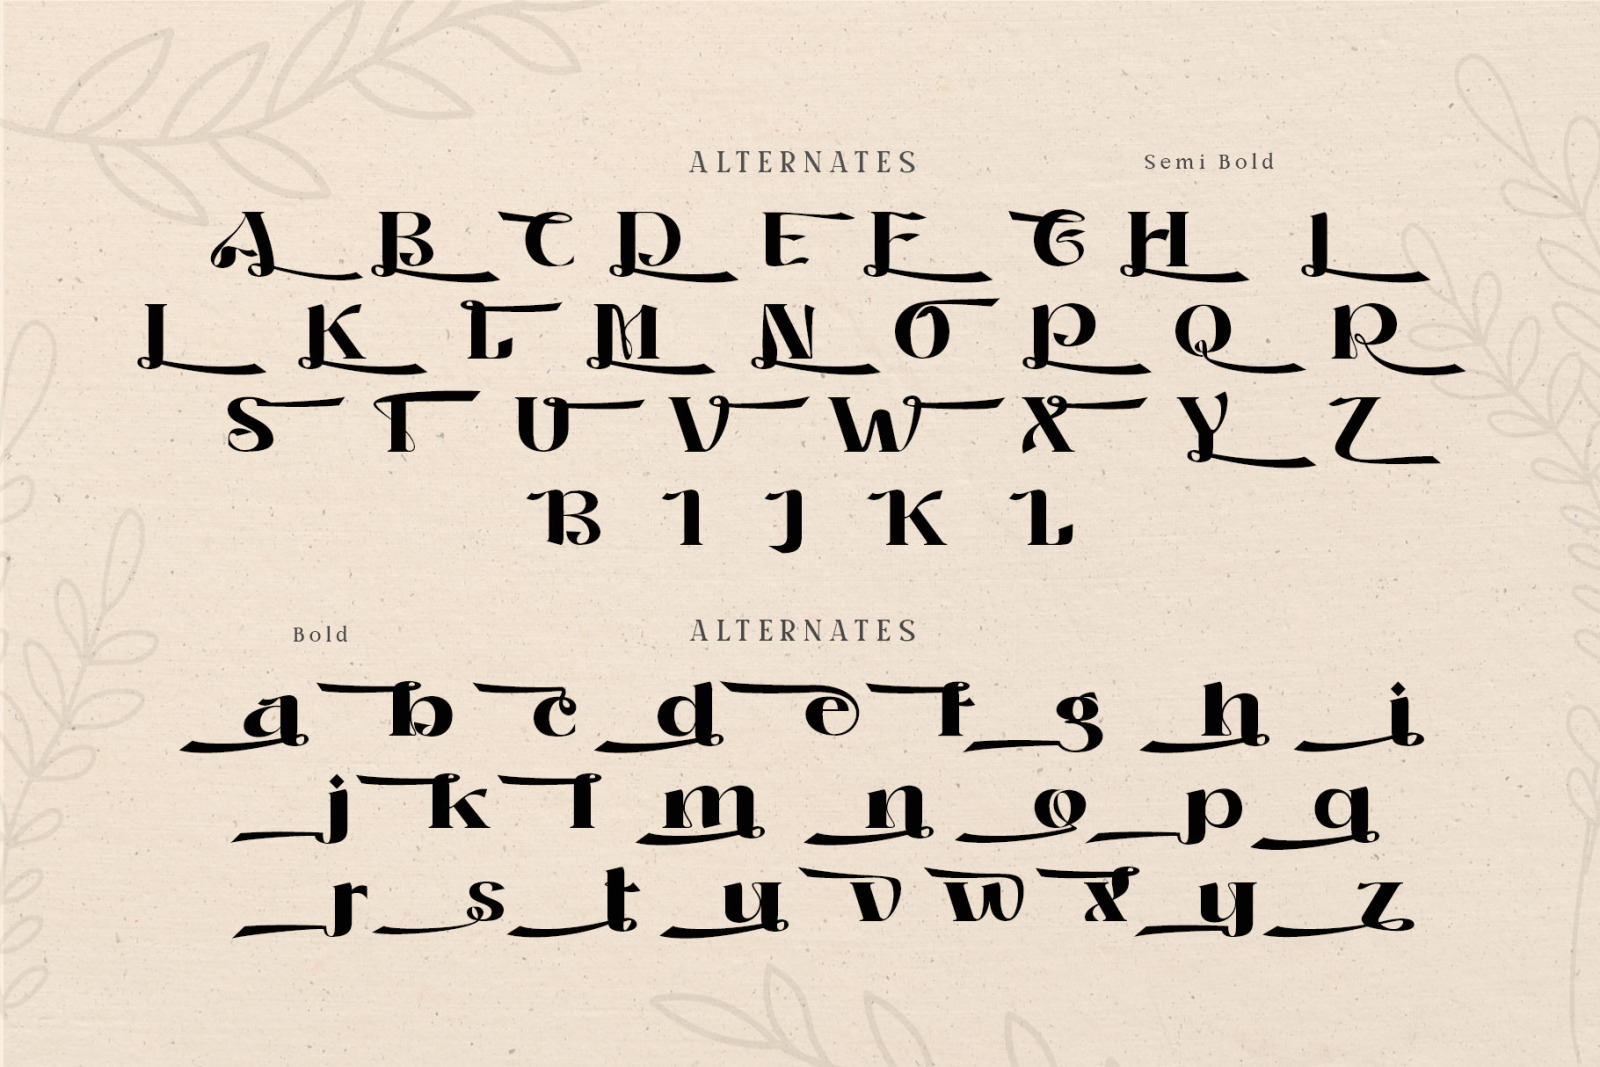 ALTERNATES Semi Bold
A B C D E F G H I
J K L M N O P Q R
S T U V W X Y Z
B I J K L
Bold ALTERNATES
a b c d e f g h i
j k l m n o p q
r s t u v w x y z